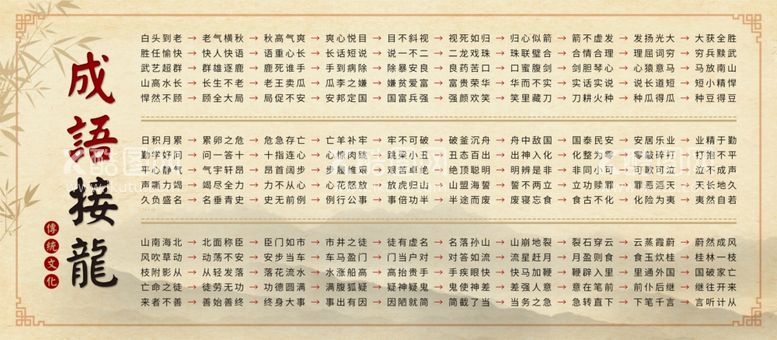 成語接龍
傳統文化
白头到老→老气横秋→秋高气爽→爽心悦目→目不斜视→视死如归→归心似箭→箭不虚发→发扬光大→大获全胜
胜任愉快→快人快语→语重心长→长话短说→说一不二→二龙戏珠→珠联璧合→合情合理→理屈词穷→穷兵黩武
武艺超群→群雄逐鹿→鹿死谁手→手到病除→除暴安良→良药苦口→口蜜腹剑→剑胆琴心→心猿意马→马放南山
山高水长→长生不老→老王卖瓜→瓜李之嫌→嫌贫爱富→富贵荣华→华而不实→实话实说→说长道短→短小精悍
悍然不顾→顾全大局→局促不安→安邦定国→国富兵强→强颜欢笑→笑里藏刀→刀耕火种→种瓜得瓜→种豆得豆
日积月累→累卵之危→危急存亡→亡羊补牢→牢不可破→破釜沉舟→舟中敌国→国泰民安→安居乐业→业精于勤
勤学好问→问一答十→十指连心→心惊肉跳→跳梁小丑→丑态百出→出神入化→化整为零→零敲碎打→打抱不平
平心静气→气宇轩昂→昂首阔步→步履艰难→艰苦卓绝→绝顶聪明→明辨是非→非同小可→可歌可泣→泣不成声
声嘶力竭→竭尽全力→力不从心→心花怒放→放虎归山→山盟海誓→誓不两立→立功赎罪→罪恶滔天→天长地久
久负盛名→名垂青史→史无前例→例行公事→事倍功半→半途而废→废寝忘食→食古不化→化险为夷→夷然自若
山南海北→北面称臣→臣门如市→市井之徒→徒有虚名→名落孙山→山崩地裂→裂石穿云→云蒸霞蔚→蔚然成风
风吹草动→动荡不安→安步当车→车马盈门→门当户对→对答如流→流星赶月→月盈则食→食玉炊桂→桂林一枝
枝附影从→从轻发落→落花流水→水涨船高→高抬贵手→手疾眼快→快马加鞭→鞭辟入里→里通外国→国破家亡
亡命之徒→徒劳无功→功德圆满→满腹狐疑→疑神疑鬼→鬼使神差→差强人意→意在笔前→前仆后继→继往开来
来者不善→善始善终→终身大事→事出有因→因陋就简→简截了当→当务之急→急转直下→下笔千言→言听计从